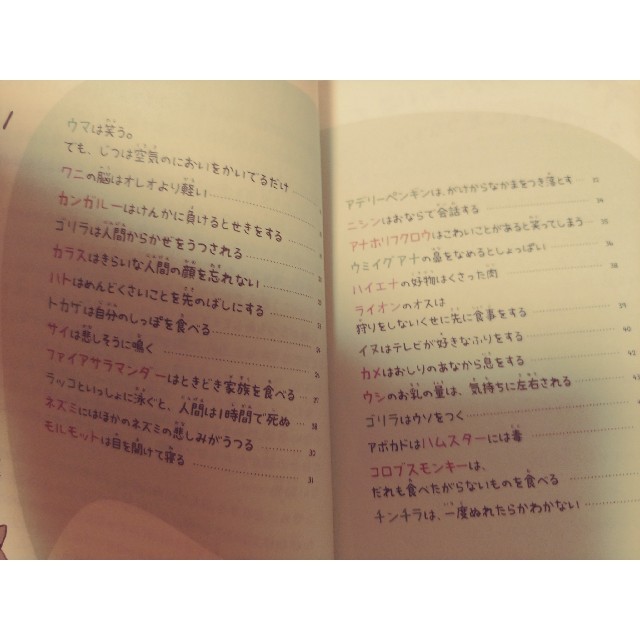 ウマは笑う。
でも、じつは空気のにおいをかいでるだけ
ワニの脳はオレオより軽い
カンガルーはけんかに負けるとせきをする
ゴリラは人間からかぜをうつされる
カラスはきらいな人間の顔を忘れない
ハトはめんどくさいことを先のばしにする
トカゲは自分のしっぽを食べる
サイは悲しそうに鳴く
ファイアサラマンダーはときどき家族を食べる
ラッコといっしょに泳ぐと、人間は1時間で死ぬ
ネズミにはほかのネズミの悲しみがうつる 30
モルモットは目を開けて寝る 31
アデリーペンギンは、がけからなかまをつき落とす
ニシンはおならで会話する 34
アナホリフクロウはこわいことがあると笑ってしまう
ウミイグアナの鼻をなめるとしょっぱい
ハイエナの好物はくさった肉 38
ライオンのオスは
狩りをしないくせに先に食事をする 39
イヌはテレビが好きなふりをする 40
カメはおしりのあなから息をする 42
ウシのお乳の量は、気持ちに左右される 43
ゴリラはウソをつく
アボカドはハムスターには毒
コロブスモンキーは、
だれも食べたがらないものを食べる
チンチラは、一度ぬれたらかわかない